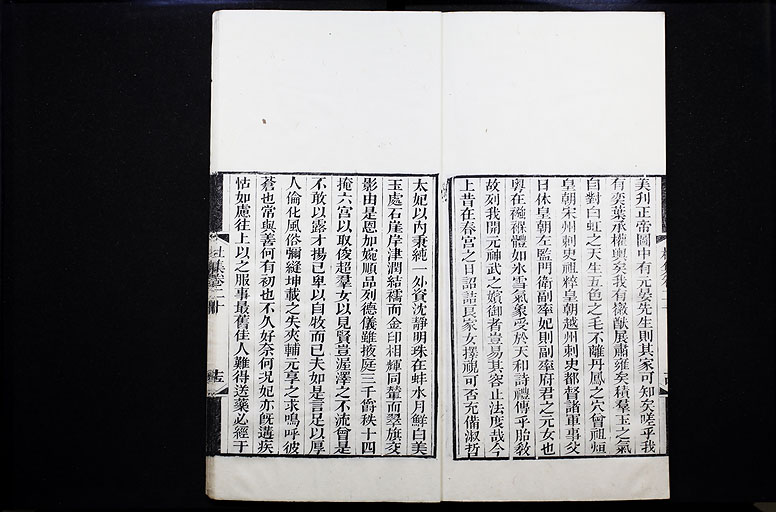 美刋正帝圖中有元晏先生則其家可知矣嗟乎我
有奕葉承權輿矣我有徽猷展肅雍矣積羣玉之氣
自對白虹之天生五色之毛不離丹鳳之穴曾祖烜
皇朝宋州刺史祖粹皇朝越州刺史都督諸軍事父
日休皇朝左監門衛副率妃則副率府君之元女也
粤在襁褓體如氷雪氣象受於天和詩禮傳乎胎教
故列我開元神武之嬪御者豈易其容止法度哉今
上昔在春宮之日詔詰良家女擇視可否充備淑哲
太妃以內秉純一外資沈靜明珠在蚌水月鮮白美
玉處石崖岸津潤結褵而金印相輝同輦而翠旗交
影由是恩加婉順品列德儀雖掖庭三千爵秩十四
掩六宮以取俊超羣女以見賢豈渥澤之不流曾是
不敢以露才揚已卑以自牧而已夫如是言足以厚
人倫化風俗彌縫坤載之失夾輔元亨之求嗚呼彼
蒼也常與善何有初也不久好奈何况妃亦旣遘疾
怙如慮往上以之服事最舊佳人難得送藥必經于
杜集卷二十